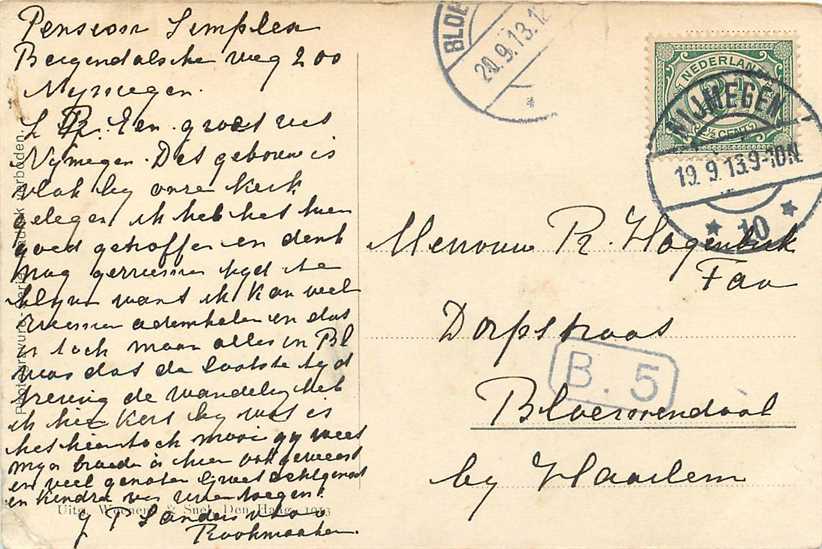 Pension Simplex
Bergendalsche weg 200
Nijmegen.
L. R. Een groet uit
Nijmegen. Det gebouw is
vlak by onze kerk
gelegen ik heb het hier
goed getroffen en denk
nog gerruimen tyd te
blyven want ik kan veel
ruimer ademhalen en dat
is toch maar alles in Bl
was dat de laatste tyd
treurig de wandeling heb
ik hier kort by wat is
het hier toch mooi gy weet
myn broeder is hier ook geweest
en veel genoten Groet echtgenoot
en kindren van
J P Sanders
Rookmaaker
Uitg. Weenenk & Snel, Den Haag. 1913
BLOE
20.9.13.1
NEDERLAND
½ CENT
NIJMEGEN
19.9.13.9-10N
10
Mevrouw R. Hogenbirk
Dorpstraat
B.5
Bloemendaal
by Haarlem